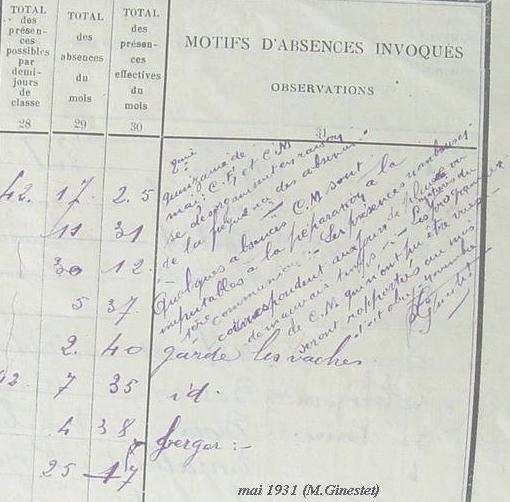 TOTAL
des
présen-
ces
possibles
par
demi-
jours
de
classe
28
TOTAL
des
absences
du
mois
29
TOTAL
des
présen-
ces
effectives
du
mois
30
MOTIFS D'ABSENCES INVOQUÉS
OBSERVATIONS
31
quinzaine de
mai: C.E, et C.M
se désorganisent en raison
de la fréquence des absences
Quelques absences C.M sont
imputables à la préparation à la
1ère communion. Les présences nombreuses
correspondent aux jours de pluie ou
de mauvais temps. Les programmes
de C.M qui n'ont pu être vus
seront rapportés au mois
d'oct
Ginestet
42. 17 25
11 31
30 12
5 37
2. 40 garde les vaches.
42. 7 35 id.
4 38 berger :-
25 17
mai 1931 (M.Ginestet)